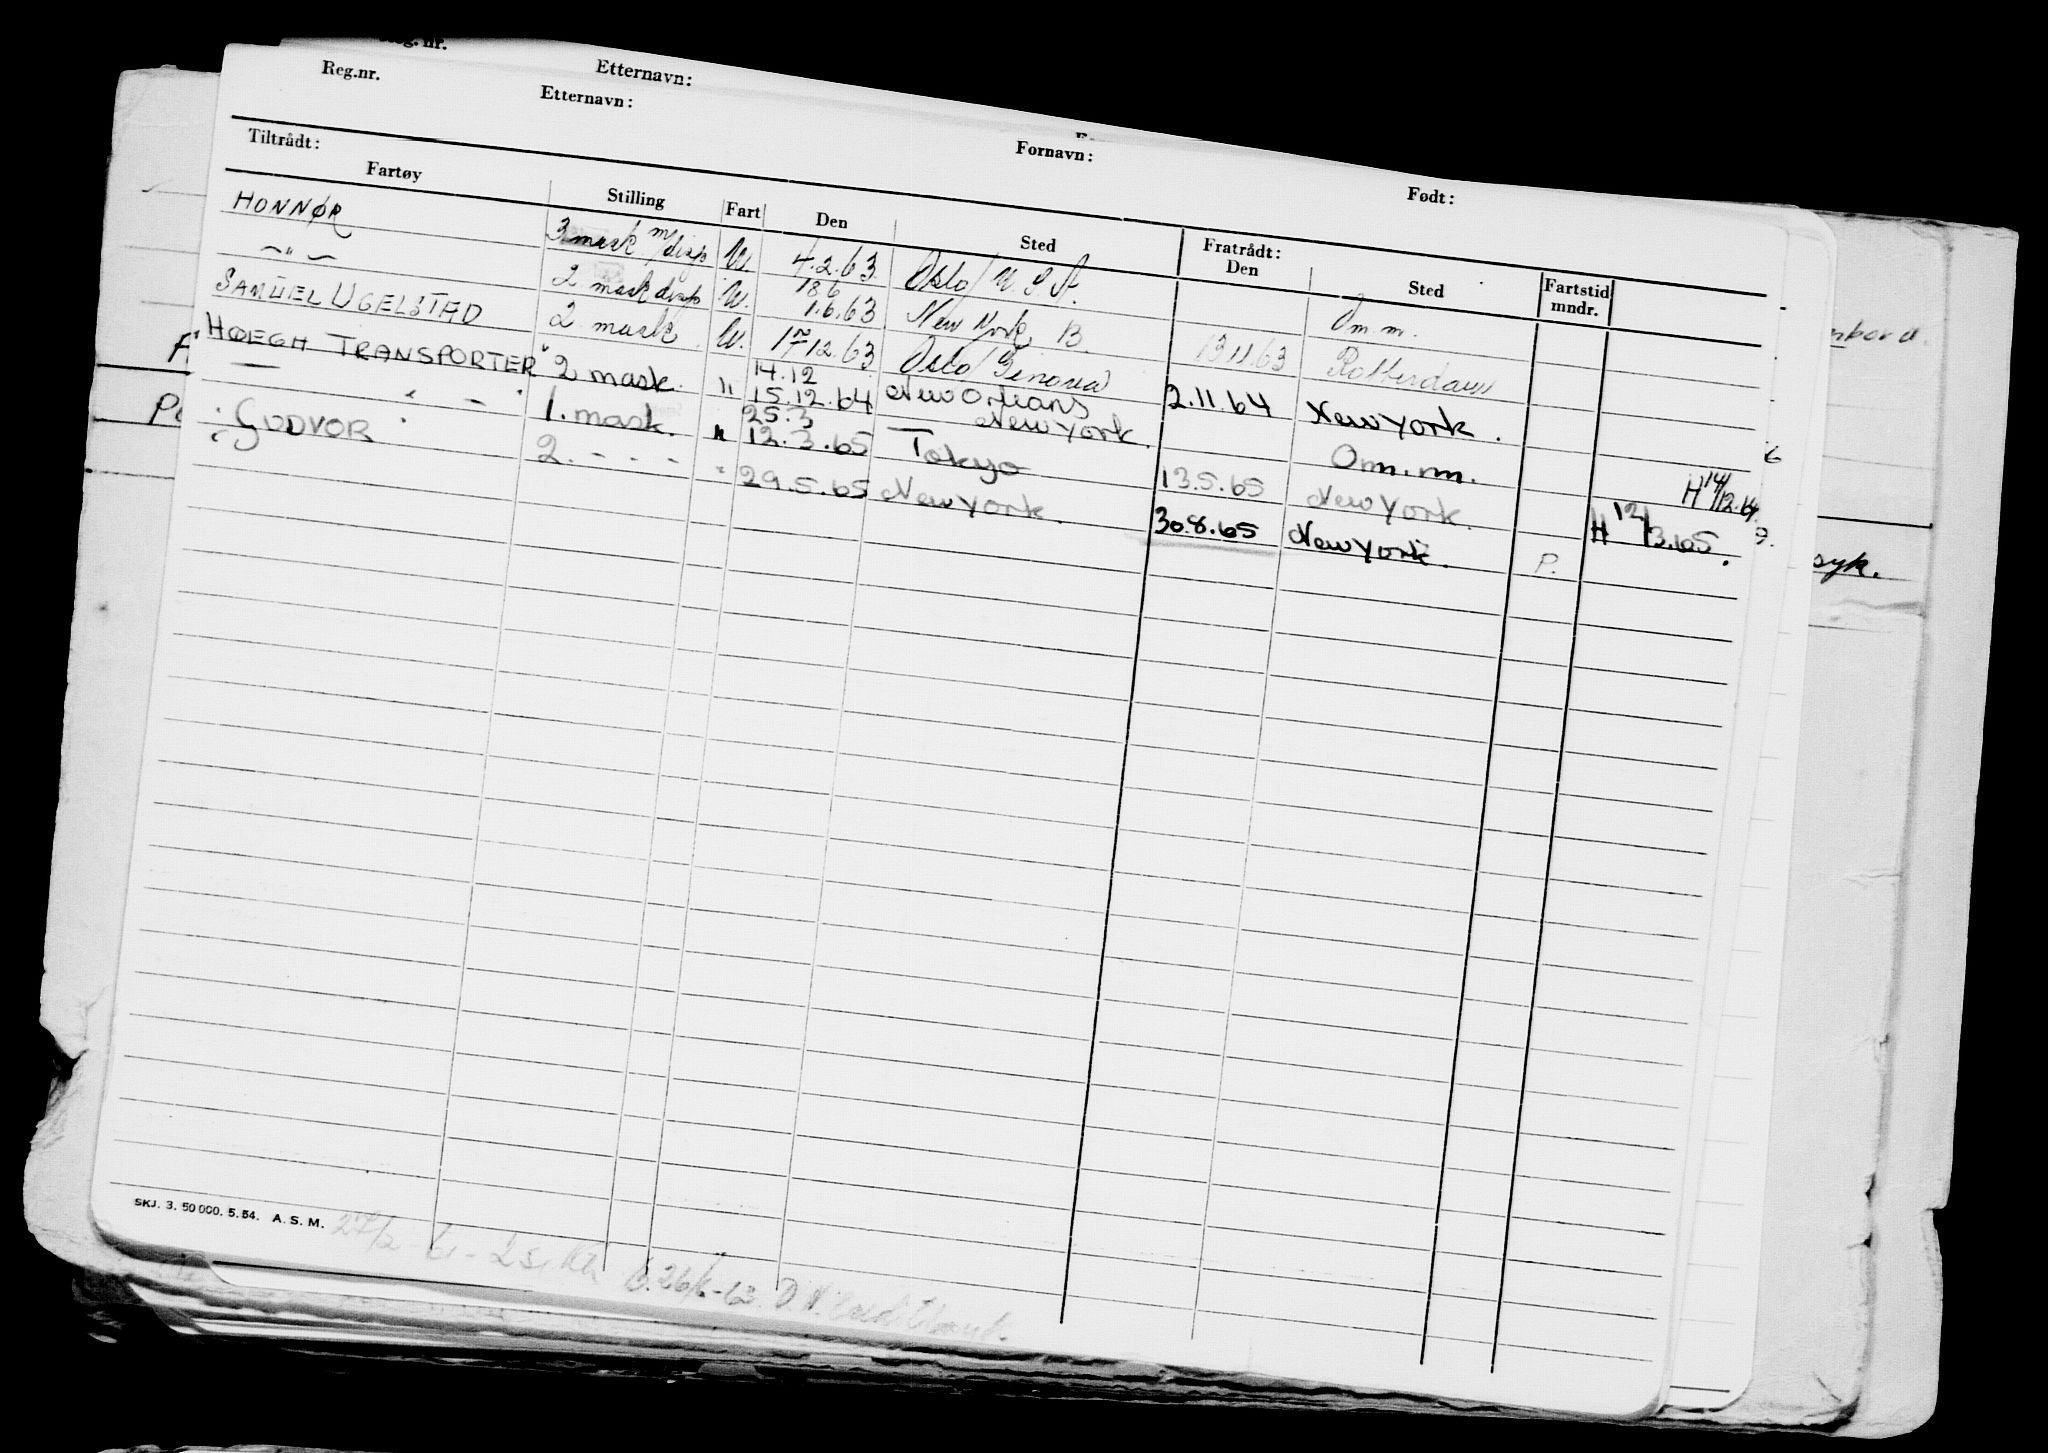 Reg.nr. Etternavn:
Reg.nr. Etternavn: Fornavn: Født:
Tiltrådt: Fratrådt:
Fartøy Stilling Fart Den Sted Den Sted Fartstid mndr.
HONNØR 3 mask m/disp W. 4.2.63. Oslo/U.S.A. Om.m.
—"— 2 mask disp W. 18.6 1.6.63 New York B. 13.11.63 Rotterdam
SAMUEL UGELSTAD 2 mask W. 17.12.63 Oslo/Genova 2.11.64 New York.
HØEGH TRANSPORTER" 2 mask. " 14.12 15.12.64 New Orleans New York. Om.m. H 14/12.64
— " — " 1. mask. " 25.3 12.3.65 Tokyo 13.5.65 New York. H 12/3.65.
GUDVOR 2. - - - " 29.5.65 New York. 30.8.65 New York. P.
syk.
SKJ. 3. 50 000. 5.54. A. S. M.